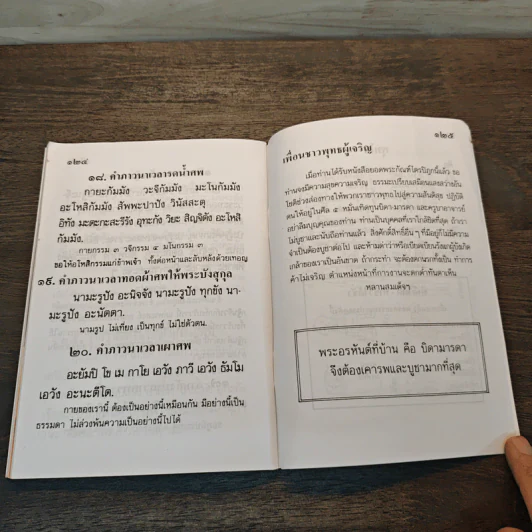 ๑๒๔
๑๘. คำภาวนาเวลารดน้ำศพ
กายะกัมมัง วะจีกัมมัง มะโนกัมมัง
อะโหสิกัมมัง สัพพะปาปัง วินัสสะตุ
อิทัง มะตะกะสะรีรัง อุทะกัง วิยะ สิญจิตัง อะโหสิ
กัมมัง.
กายกรรม ๓ วจีกรรม ๔ มโนกรรม ๓
ขอให้อโหสิกรรมแก่ข้าพเจ้า ทั้งต่อหน้าและลับหลังด้วยเทอญ
๑๙. คำภาวนาเวลาทอดผ้าศพให้พระบังสุกุล
นามะรูปัง อะนิจจัง นามะรูปัง ทุกขัง นา-
มะรูปัง อะนัตตา.
นามรูป ไม่เที่ยง เป็นทุกข์ ไม่ใช่ตัวตน.
๒๐. คำภาวนาเวลาเผาศพ
อะยัมปิ โข เม กาโย เอวัง ภาวี เอวัง ธัมโม
เอวัง อะนะตีโต.
กายของเรานี้ ต้องเป็นอย่างนี้เหมือนกัน มีอย่างนี้เป็น
ธรรมดา ไม่ล่วงพ้นความเป็นอย่างนี้ไปได้
๑๒๕
เพื่อนชาวพุทธผู้เจริญ
เมื่อท่านได้รับหนังสือยอดพระกัณฑ์ไตรปิฎกนี้แล้ว ขอ
ท่านจงมีความสุขความเจริญ ธรรมะเปรียบเสมือนแสงสว่างอัน
โชติช่วงส่องทางให้พวกเราชาวพุทธไปสู่ความสันติสุข ปฏิบัติ
ตนให้อยู่ในศีล ๕ หมั่นคิดทุนบิดา มารดา และครูบาอาจารย์
อย่าลืมบุญคุณของท่าน ท่านเป็นบุคคลที่เราใกล้ชิดที่สุด ถ้าเรา
ไม่บูชาและนับถือท่านแล้ว สิ่งศักดิ์สิทธิ์อื่นๆ ที่มีอยู่ก็ไม่มีความ
จำเป็นต้องบูชาต่อไป และห้ามด่าว่าหรือเบียดเบียนรังแกผู้บังเกิด
เกล้าของเราเป็นอันขาด ถ้ากระทำ จะต้องตกนรกทั้งเป็น ทำการ
ค้าไม่เจริญ ตำแหน่งหน้าที่การงานจะตกต่ำทันตาเห็น
หลานสมเด็จฯ
พระอรหันต์ที่บ้าน คือ บิดามารดา
จึงต้องเคารพและบูชามากที่สุด